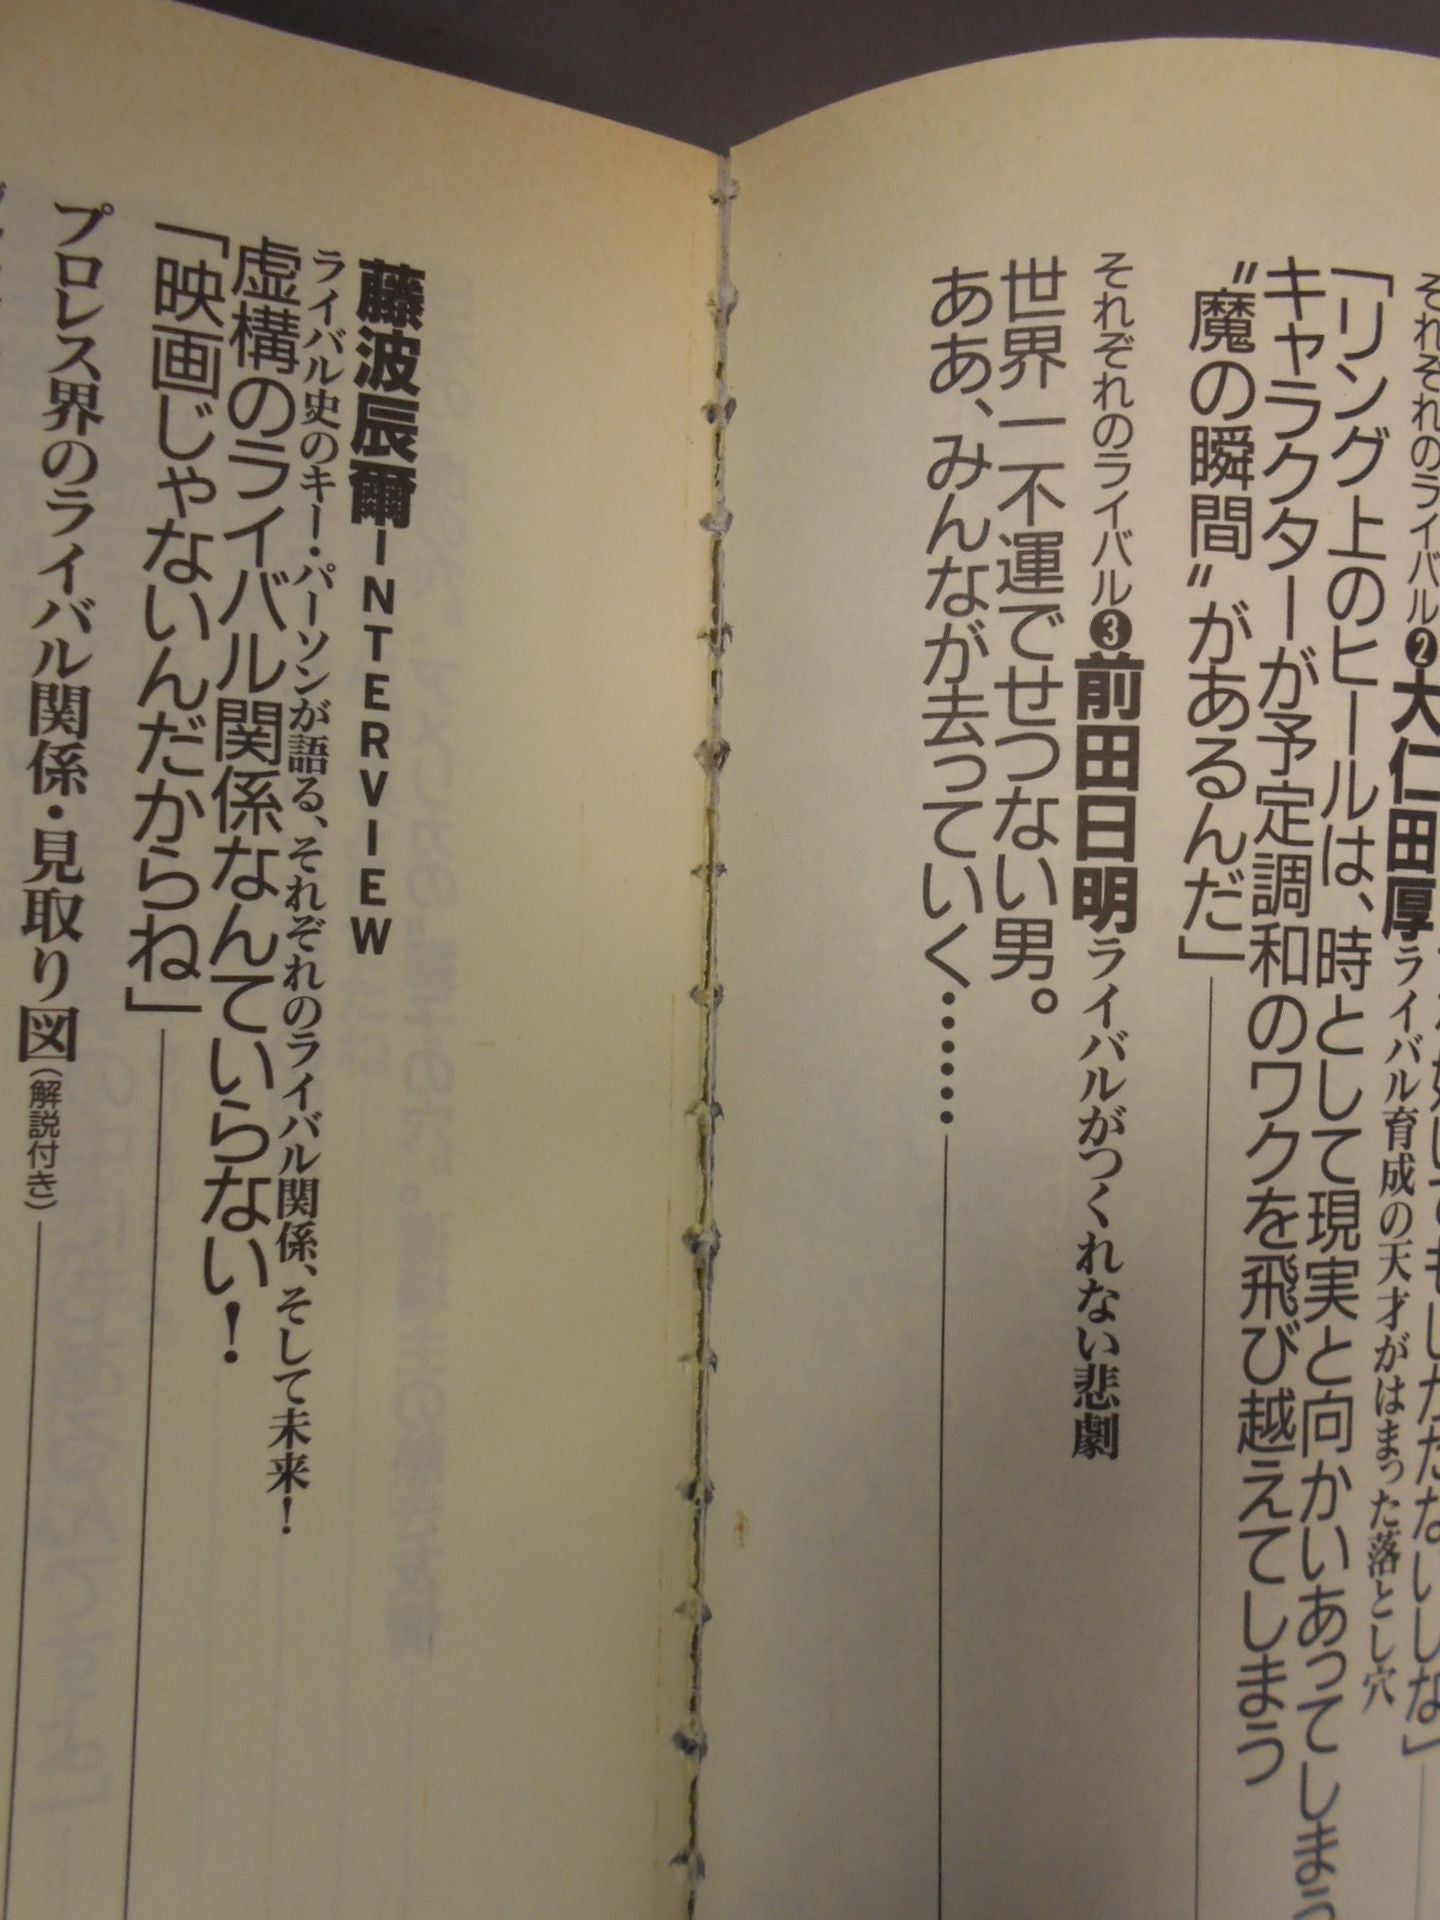 それぞれのライバル❷大仁田厚ライバル育成の天才がはまった落とし穴
「リング上のヒールは、時として現実と向かいあってしまう
キャラクターが予定調和のワクを飛び越えてしまう
〝魔の瞬間〟があるんだ」
それぞれのライバル❸前田日明ライバルがつくれない悲劇
世界一不運でせつない男。
ああ、みんなが去っていく……
藤波辰爾INTERVIEW
ライバル史のキー・パーソンが語る、それぞれのライバル関係、そして未来！
虚構のライバル関係なんていらない！
「映画じゃないんだからね」
プロレス界のライバル関係・見取り図（解説付き）